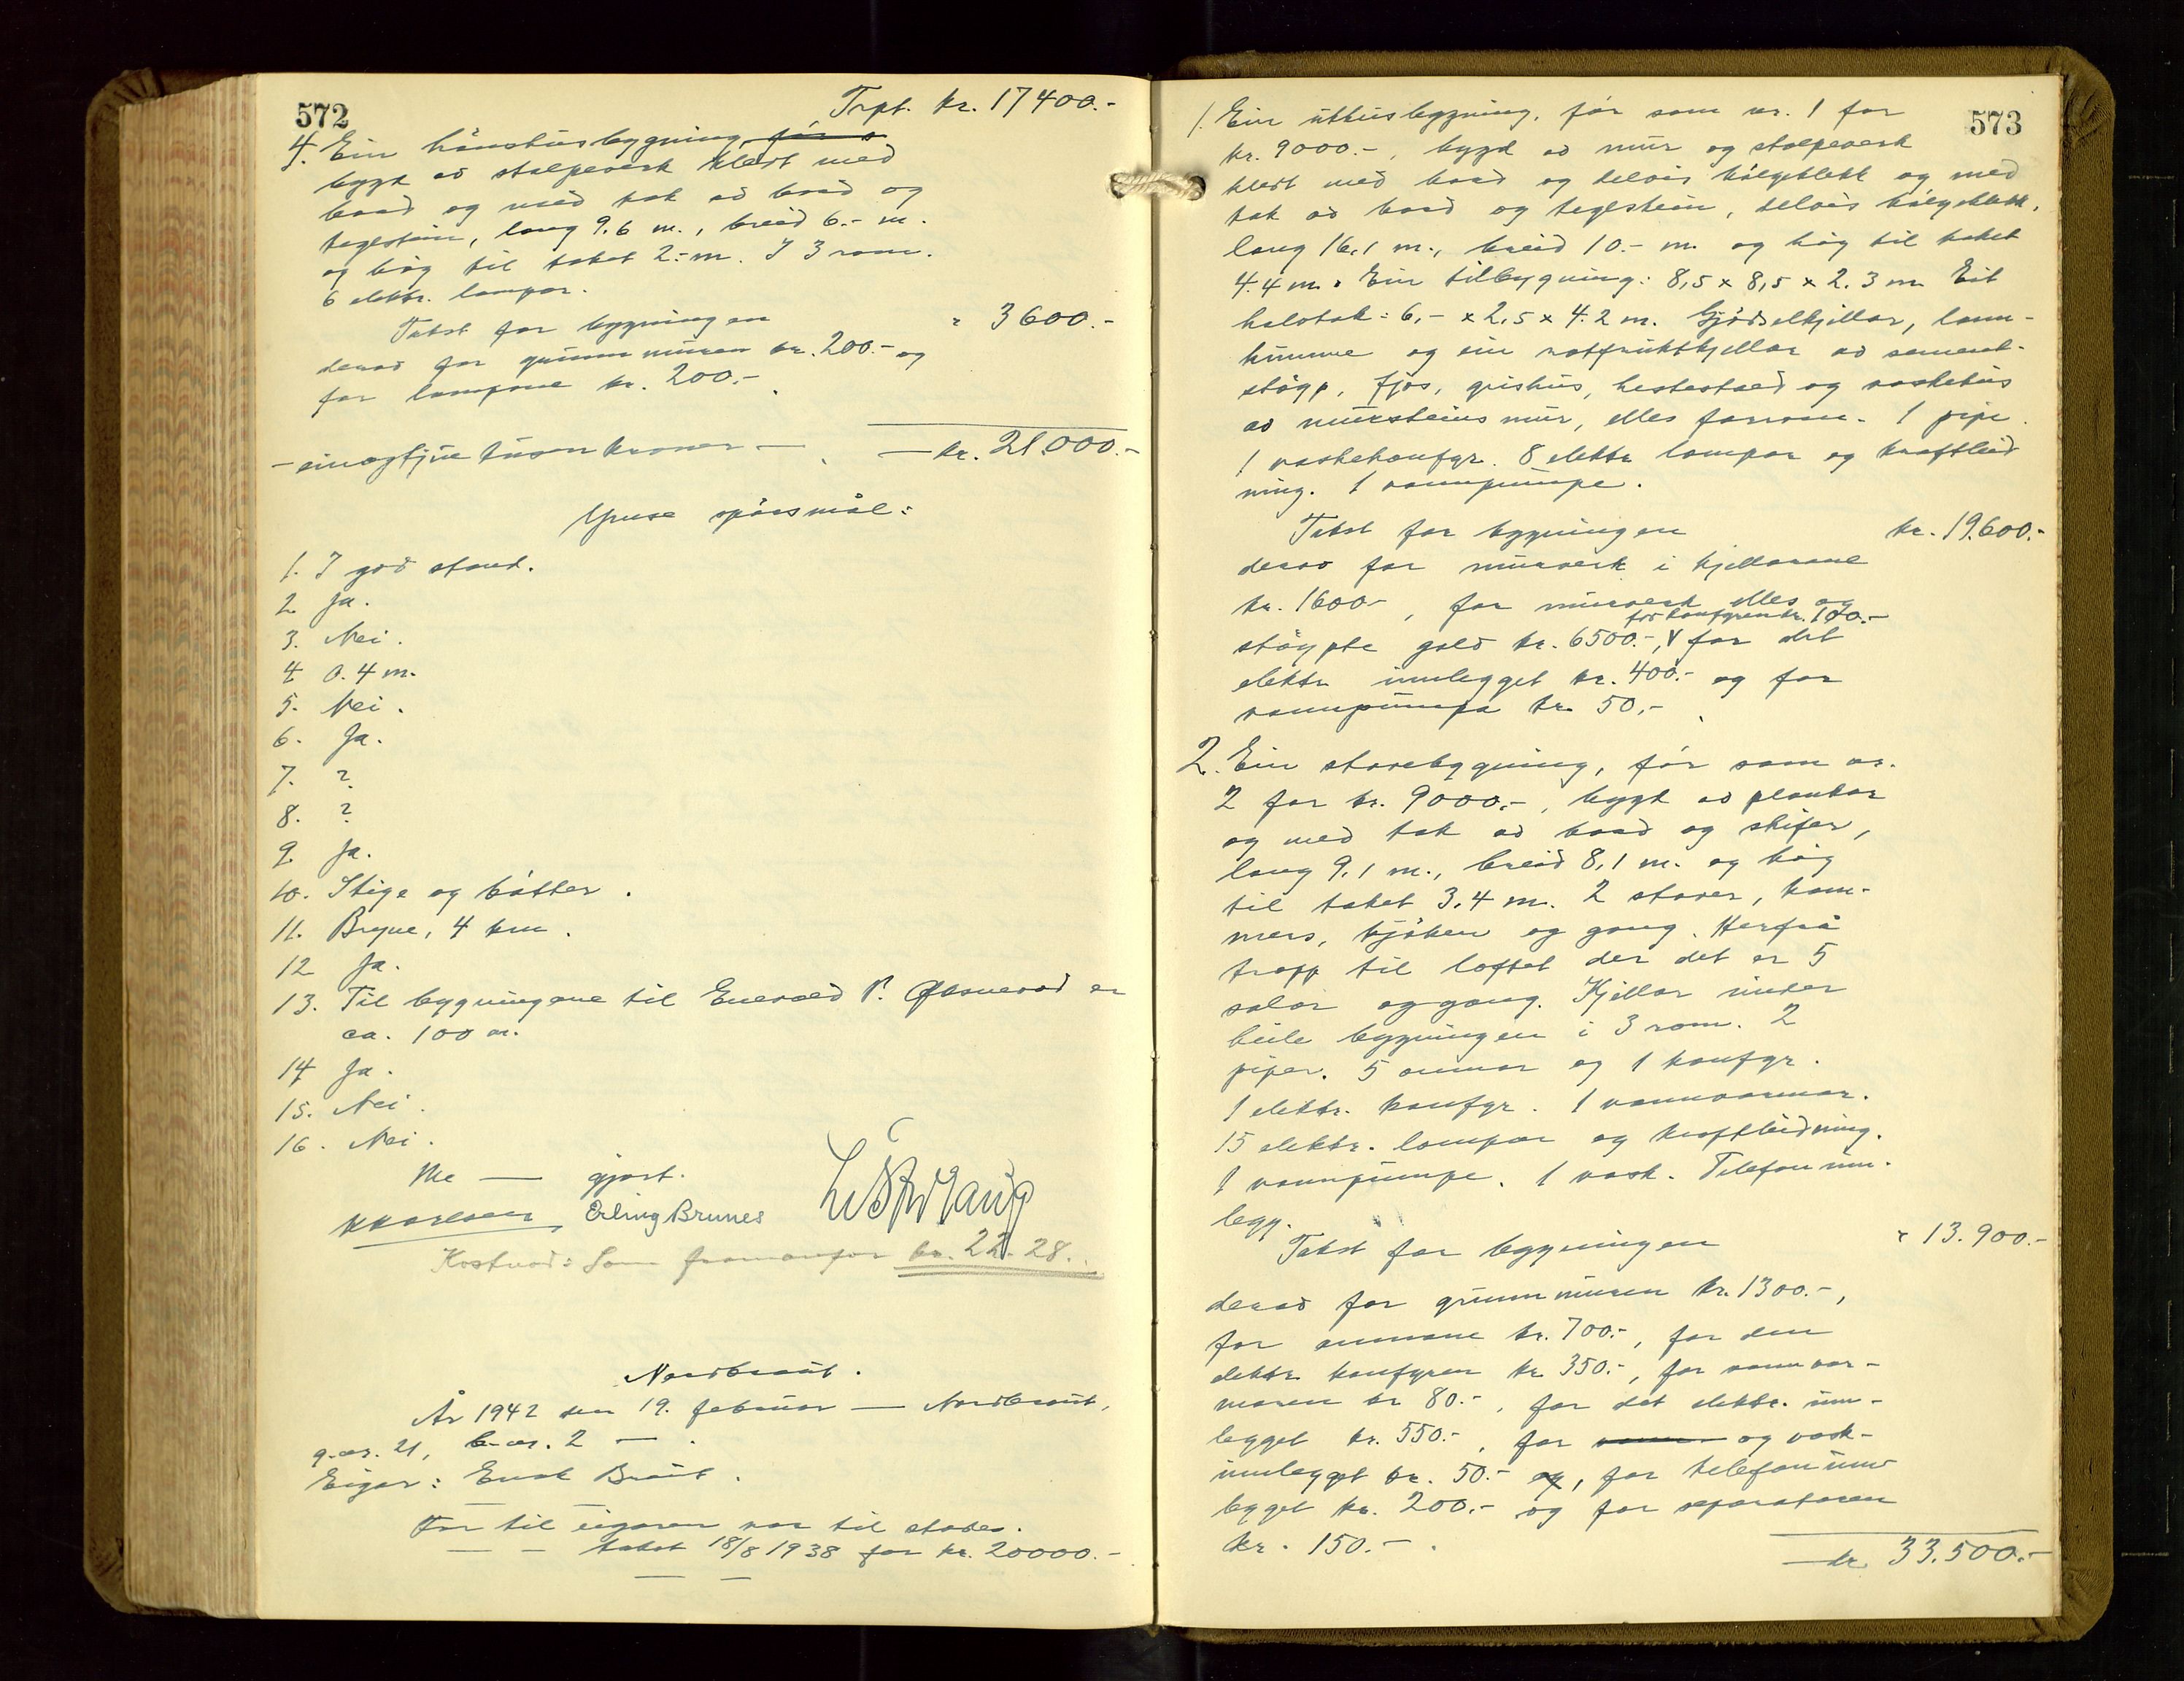 572
Trpt. kr. 17400.-
4. Ein hønsehusbygning før s
bygt av stolpeverk kledt med
bord og med tak av bord og
teglstein, lang 9.6 m., breid 6.- m.
og høg til taket 2.- m. I 3 rom.
6 elektr. lampor.
Takst for bygningen " 3600.-
derav for grunnmuren kr. 200.- og
for lampone kr. 200.-
- einogtjue tusen kroner — — kr. 21.000.-
Ymse spørsmål:
1. I god stand.
2. Ja.
3. Nei.
4. 0.4 m.
5. Nei.
6. Ja.
7. ?
8. ?
9. Ja.
10. Stige og bøtter.
11. Bryne, 4 km.
12 Ja.
13. Til bygningane til Enevald P. er
ca. 100 m.
14 Ja.
15. Nei.
16. Nei.
Me — gjort.
Erling Brunes
Kostnad: Som framanfor kr. 22.28.
Nordbraut.
År 1942 den 19. februar — Nordbraut,
g.nr. 21, b.nr. 2 — .
Eigar: Enok Braut.
Far til eigaren var til stades.
— — takst 18/8 1938 for kr. 20000.-
— —
573
1. Ein uthusbygning, før som nr. 1 for
kr. 9000.-, bygd av mur og stolpeverk
kledt med bord og delvis bølgeblekk og med
tak av bord og teglstein, delvis bølgeblekk,
lang 16,1 m., breid 10.- m. og høg til taket
4.4 m. Ein tilbygning: 8,5 x 8,5 x 2.3 m. Eit
halvtak: 6,- x 2,5 x 4.2 m. Gjødselkjellar, lann-
kumme og ein rotfruktkjellar av sement-
støyp. Fjøs, grishus, hestestald og vaskehus
av mursteinsmur, elles forrom. 1 pipe.
1 vaskekomfyr. 8 elektr lampor og kraftleid
ning. 1 vannpumpe.
Takst for bygningen kr. 19.600.-
derav for murverk i kjellarane
kr. 1600.-, for murverk elles og
for komfyren kr. 100.-
støypte golv kr. 6500.-, V for det
elektr innlegget kr. 400.- og for
vannpumpa kr. 50,-
2. Ein stovebygning, før som nr.
2 for kr. 9000.-, bygt av plankar
og med tak av bord og skifer,
lang 9,1 m., breid 8,1 m. og høg
til taket 3,4 m. 2 stover, kam-
mers, kjøken og gang. Herfrå
trapp til loftet der det er 5
salar og gang. Kjellar under
heile bygningen i 3 rom. 2
piper. 5 omnar og 1 komfyr.
1 elektr. komfyr. 1 vannvarmar.
15 elektr. lampor og kraftleidning.
1 vannpumpe. 1 vask. Telefoninn-
legg.
Takst for bygningen " 13.900.-
derav for grunnmuren kr. 1300.-,
for omnane kr. 700.-, for den
elektr. komfyren kr 350.-, for vannvar-
maren kr 80.-, for det elektr. inn-
legget kr. 550.-, for og vask-
innlegget kr. 50.- og, for telefoninn
legget kr. 200.- og for separatoren
kr. 150.-.
— kr 33.500.-